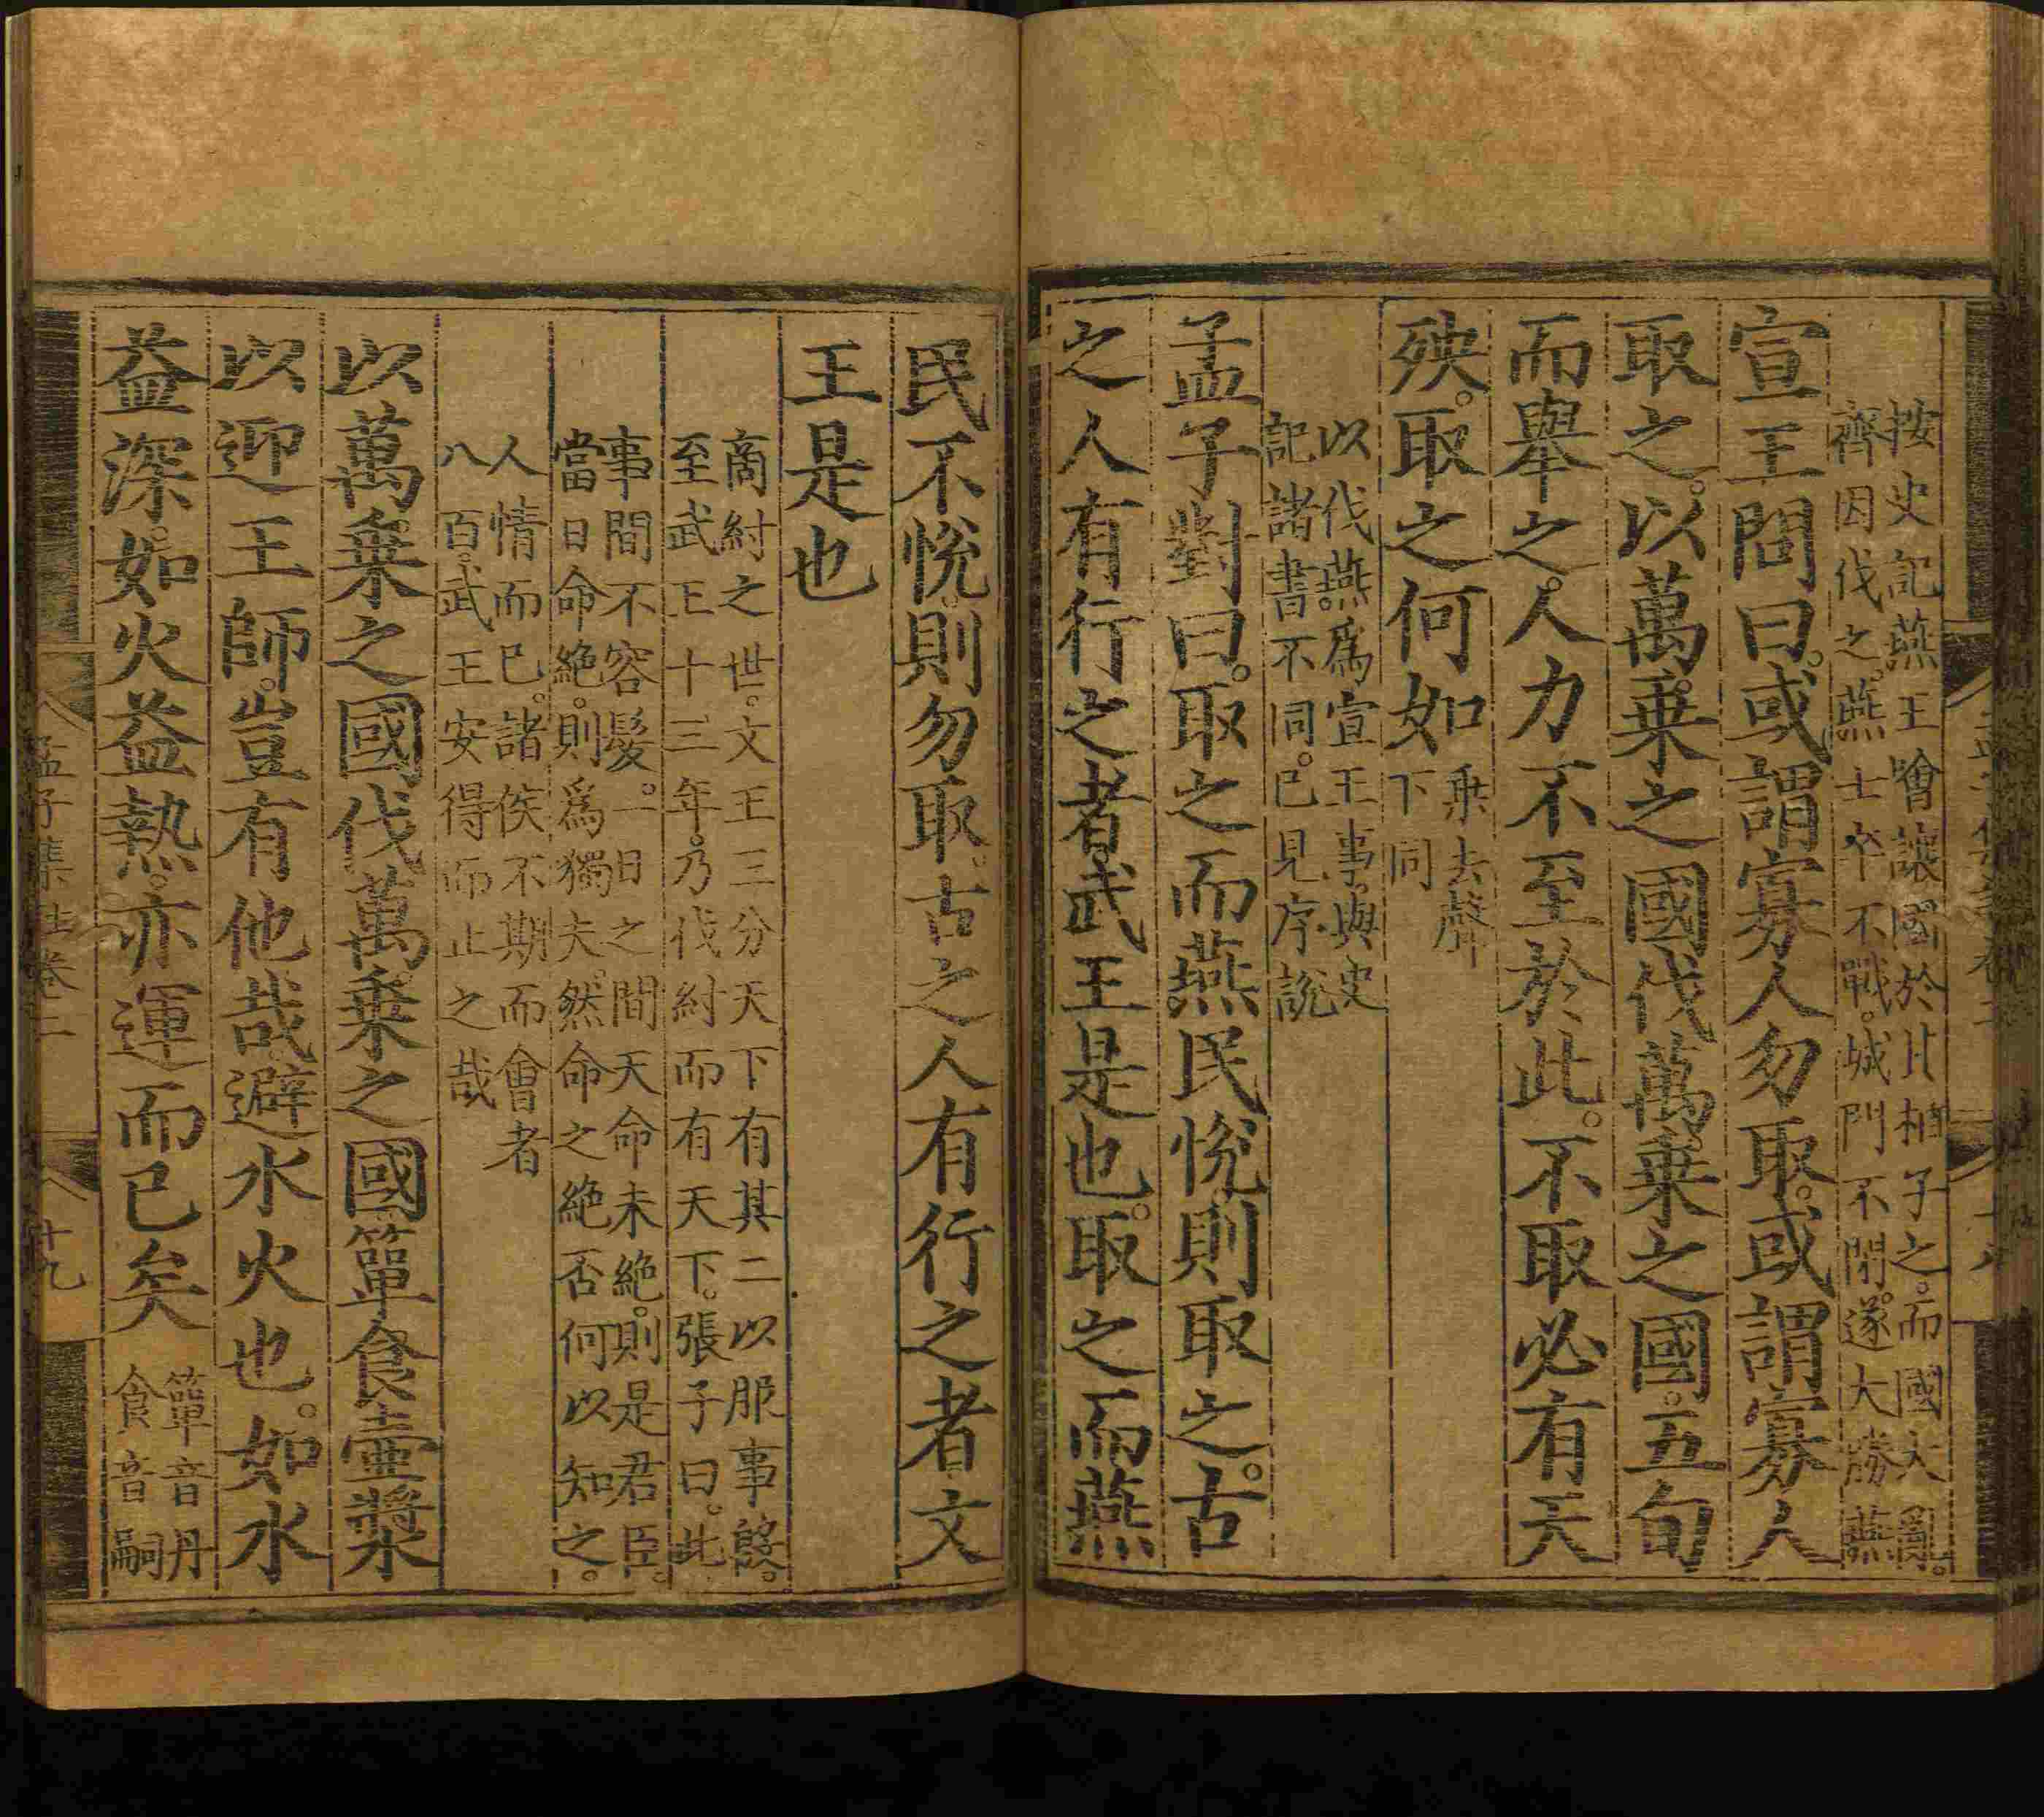 按史記燕王噲讓國於其相子之。而國大亂。
齊因伐之。燕士卒不戰。城門不閉。遂大勝燕
宣王問曰。或謂寡人勿取。或謂寡人
取之。以萬乗之國伐萬乗之國。五旬
而舉之。人力不至於此。不取必有天
殃。取之何如
乗去聲
下同
以伐燕。爲宣王事。與史
記諸書不同。已見序說
孟子對曰。取之而燕民悅。則取之。古
之人有行之者。武王是也。取之而燕
民不悅。則勿取。古之人有行之者文
王是也
商紂之世。文王三分天下有其二以服事殷。
至武王十三年。乃伐紂而有天下。張子曰。此
事間不容髮。一日之間天命未絕。則是君臣。
當日命絕。則爲獨夫。然命之絕否何以知之。
人情而已。諸侯不期而會者
八百。武王安得而止之哉
以萬乗之國伐萬乗之國簞食壺漿
以迎王師。豈有他哉避水火也。如水
益深。如火益熱。亦運而已矣
簞音丹
食音嗣
孟子集註卷二
十九